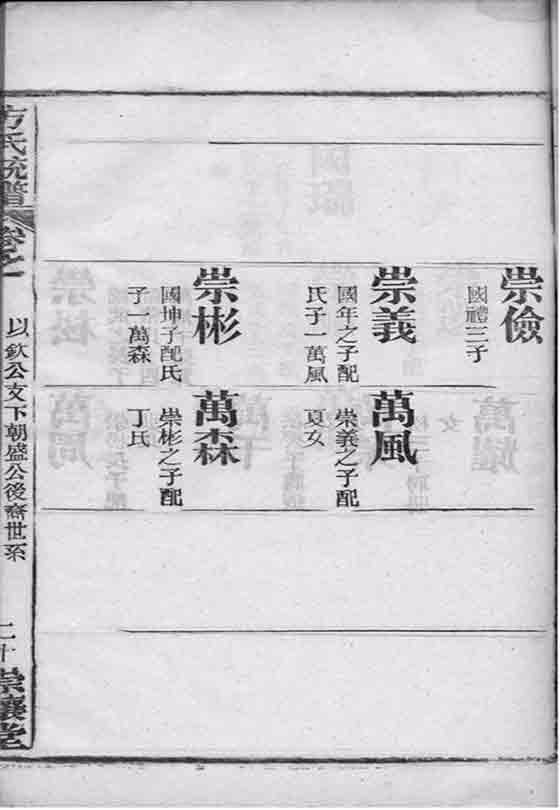 崇儉
國禮三子
崇義
國年之子配
氏子一萬風
崇彬
國坤子配氏
子一萬森
萬風
崇義之子配
夏女
萬森
崇彬之子配
丁氏
方氏統譜
卷之一
以欽公支下朝盛公後裔世系
二十
崇讓堂